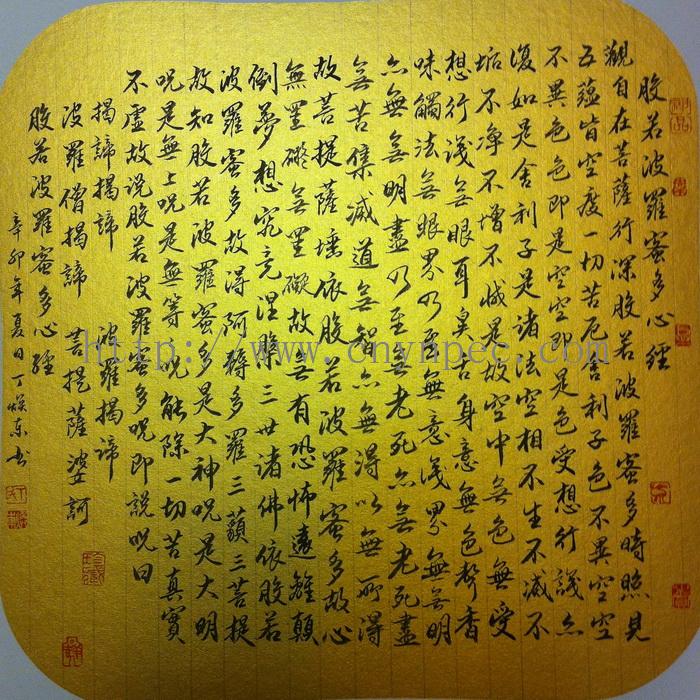 般若波羅蜜多心經
觀自在菩薩行深般若波羅蜜多時照見
五蘊皆空度一切苦厄舍利子色不異空空
不異色色即是空空即是色受想行識亦
復如是舍利子是諸法空相不生不滅不
垢不淨不增不減是故空中無色無受
想行識無眼耳鼻舌身意無色聲香
味觸法無眼界乃至無意識界無無明
亦無無明盡乃至無老死亦無老死盡
無苦集滅道無智亦無得以無所得
故菩提薩埵依般若波羅蜜多故心
無罣礙無罣礙故無有恐怖遠離顛
倒夢想究竟涅槃三世諸佛依般若
波羅蜜多故得阿耨多羅三藐三菩提
故知般若波羅蜜多是大神呪是大明
呪是無上呪是無等々呪能除一切苦真實
不虛故說般若波羅蜜多呪即說呪曰
揭諦揭諦 波羅揭諦
波羅僧揭諦 菩提薩婆訶
般若波羅蜜多心經
辛卯年夏日丁煥東书
http://www.cnynpec.com